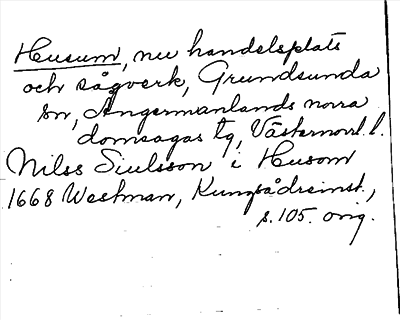 Husum, nu handelsplats
och sågverk, Grundsunda
sn, Ångermanlands norra
domsagas tg, Västernorrl. l.
Nilss Siulsson i Husom
1668 Westman, Kungsådreinst.,
s. 105. orig.